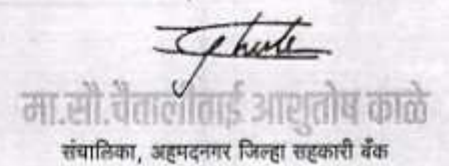 मा.सौ.चैतालीताई आशुतोष काळे
संचालिका, अहमदनगर जिल्हा सहकारी बँक